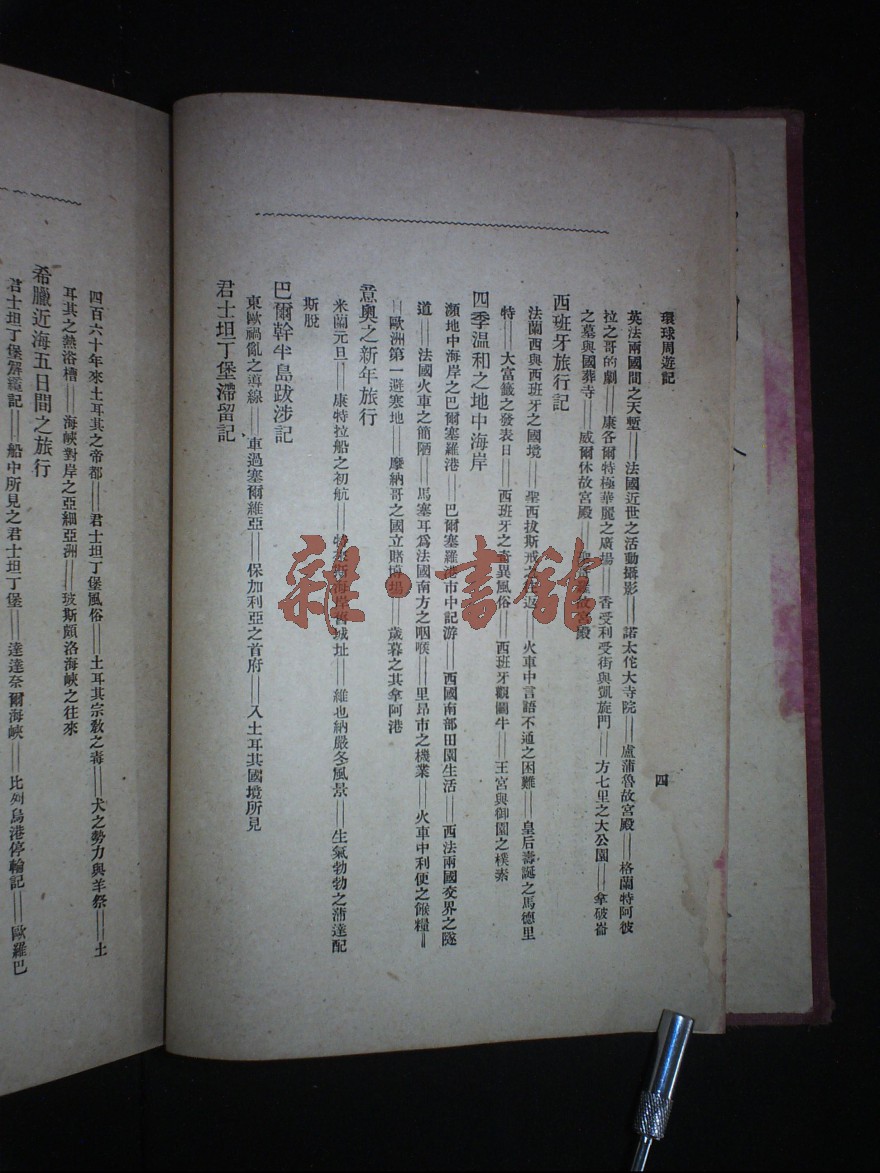 環球周遊記
四
英法兩國間之天塹——法國近世之活動攝影——諾太佗大寺院——盧蒲魯故宮殿——格蘭特阿彼
拉之哥的劇——康各爾特極華麗之廣場——香受利受街與凱旋門——方七里之大公園——拿破崙
之墓與國葬寺——威爾休故宮殿——故宮殿
西班牙旅行記
法蘭西與西班牙之國境——聖西拔斯戒之——火車中言語不通之困難——皇后壽誕之馬德里
特——大富籤之發表日——西班牙之奇異風俗——西班牙觀鬭牛——王宮與御園之樸素
四季溫和之地中海岸
瀕地中海岸之巴爾塞羅港——巴爾塞羅港市中記游——西國南部田園生活——西法兩國交界之隧
道——法國火車之簡陋——馬塞耳爲法國南方之咽喉——里昂市之機業——火車中利便之餱糧—
—歐洲第一避寒地——摩納哥之國立賭博場——歲暮之其拿阿港
意奧之新年旅行
米蘭元旦——康特拉船之初航——海岸舊城址——維也納嚴冬風景——生氣勃勃之蒲達配
斯脫
巴爾幹半島跋涉記
東歐禍亂之導線——車過塞爾維亞——保加利亞之首府——入土耳其國境所見
君士坦丁堡滯留記
四百六十年來土耳其之帝都——君士坦丁堡風俗——土耳其宗教之毒——犬之勢力與羊祭——土
耳其之熱浴槽——海峽對岸之亞細亞洲——玻斯頗洛海峽之往來
希臘近海五日間之旅行
君士坦丁堡解纜記——船中所見之君士坦丁堡——達達奈爾海峽——比列烏港停輪記——歐羅巴
雜·書館